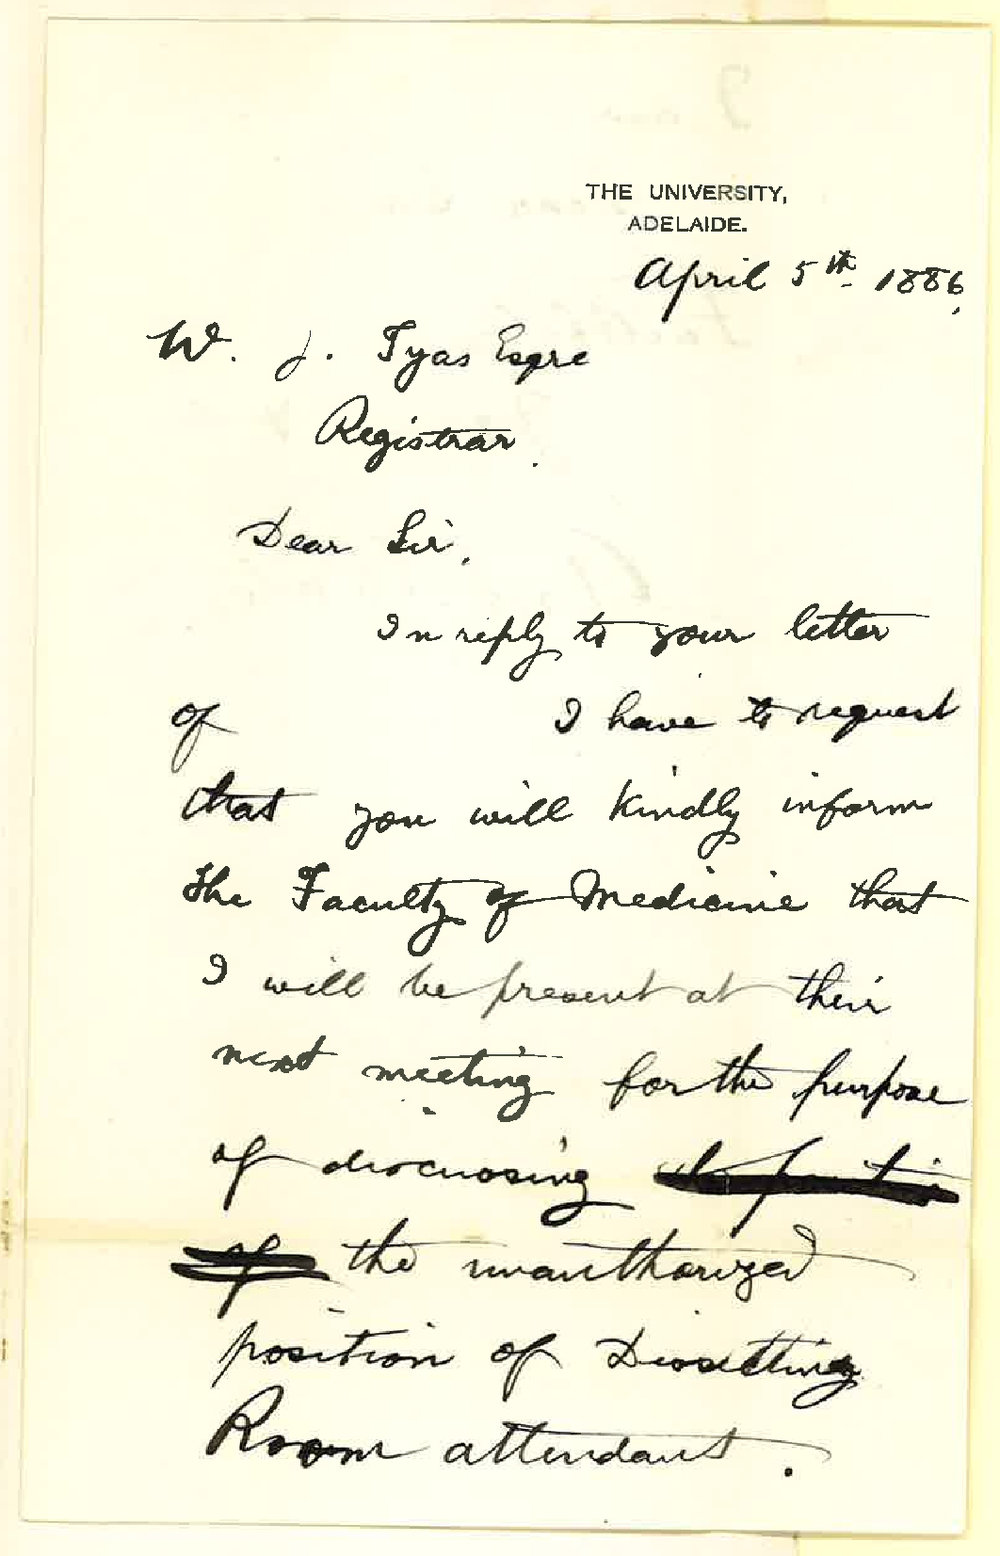 THE UNIVERSITY,
ADELAIDE.
April 5th 1886.
W. J. Tyas Esqre
Registrar.
Dear Sir,
In reply to your letter
of I have to request
that you will kindly inform
the Faculty of Medicine that
I will be present at their
next meeting for the purpose
of discussing
of the unauthorized
position of Dissecting
Room attendant.